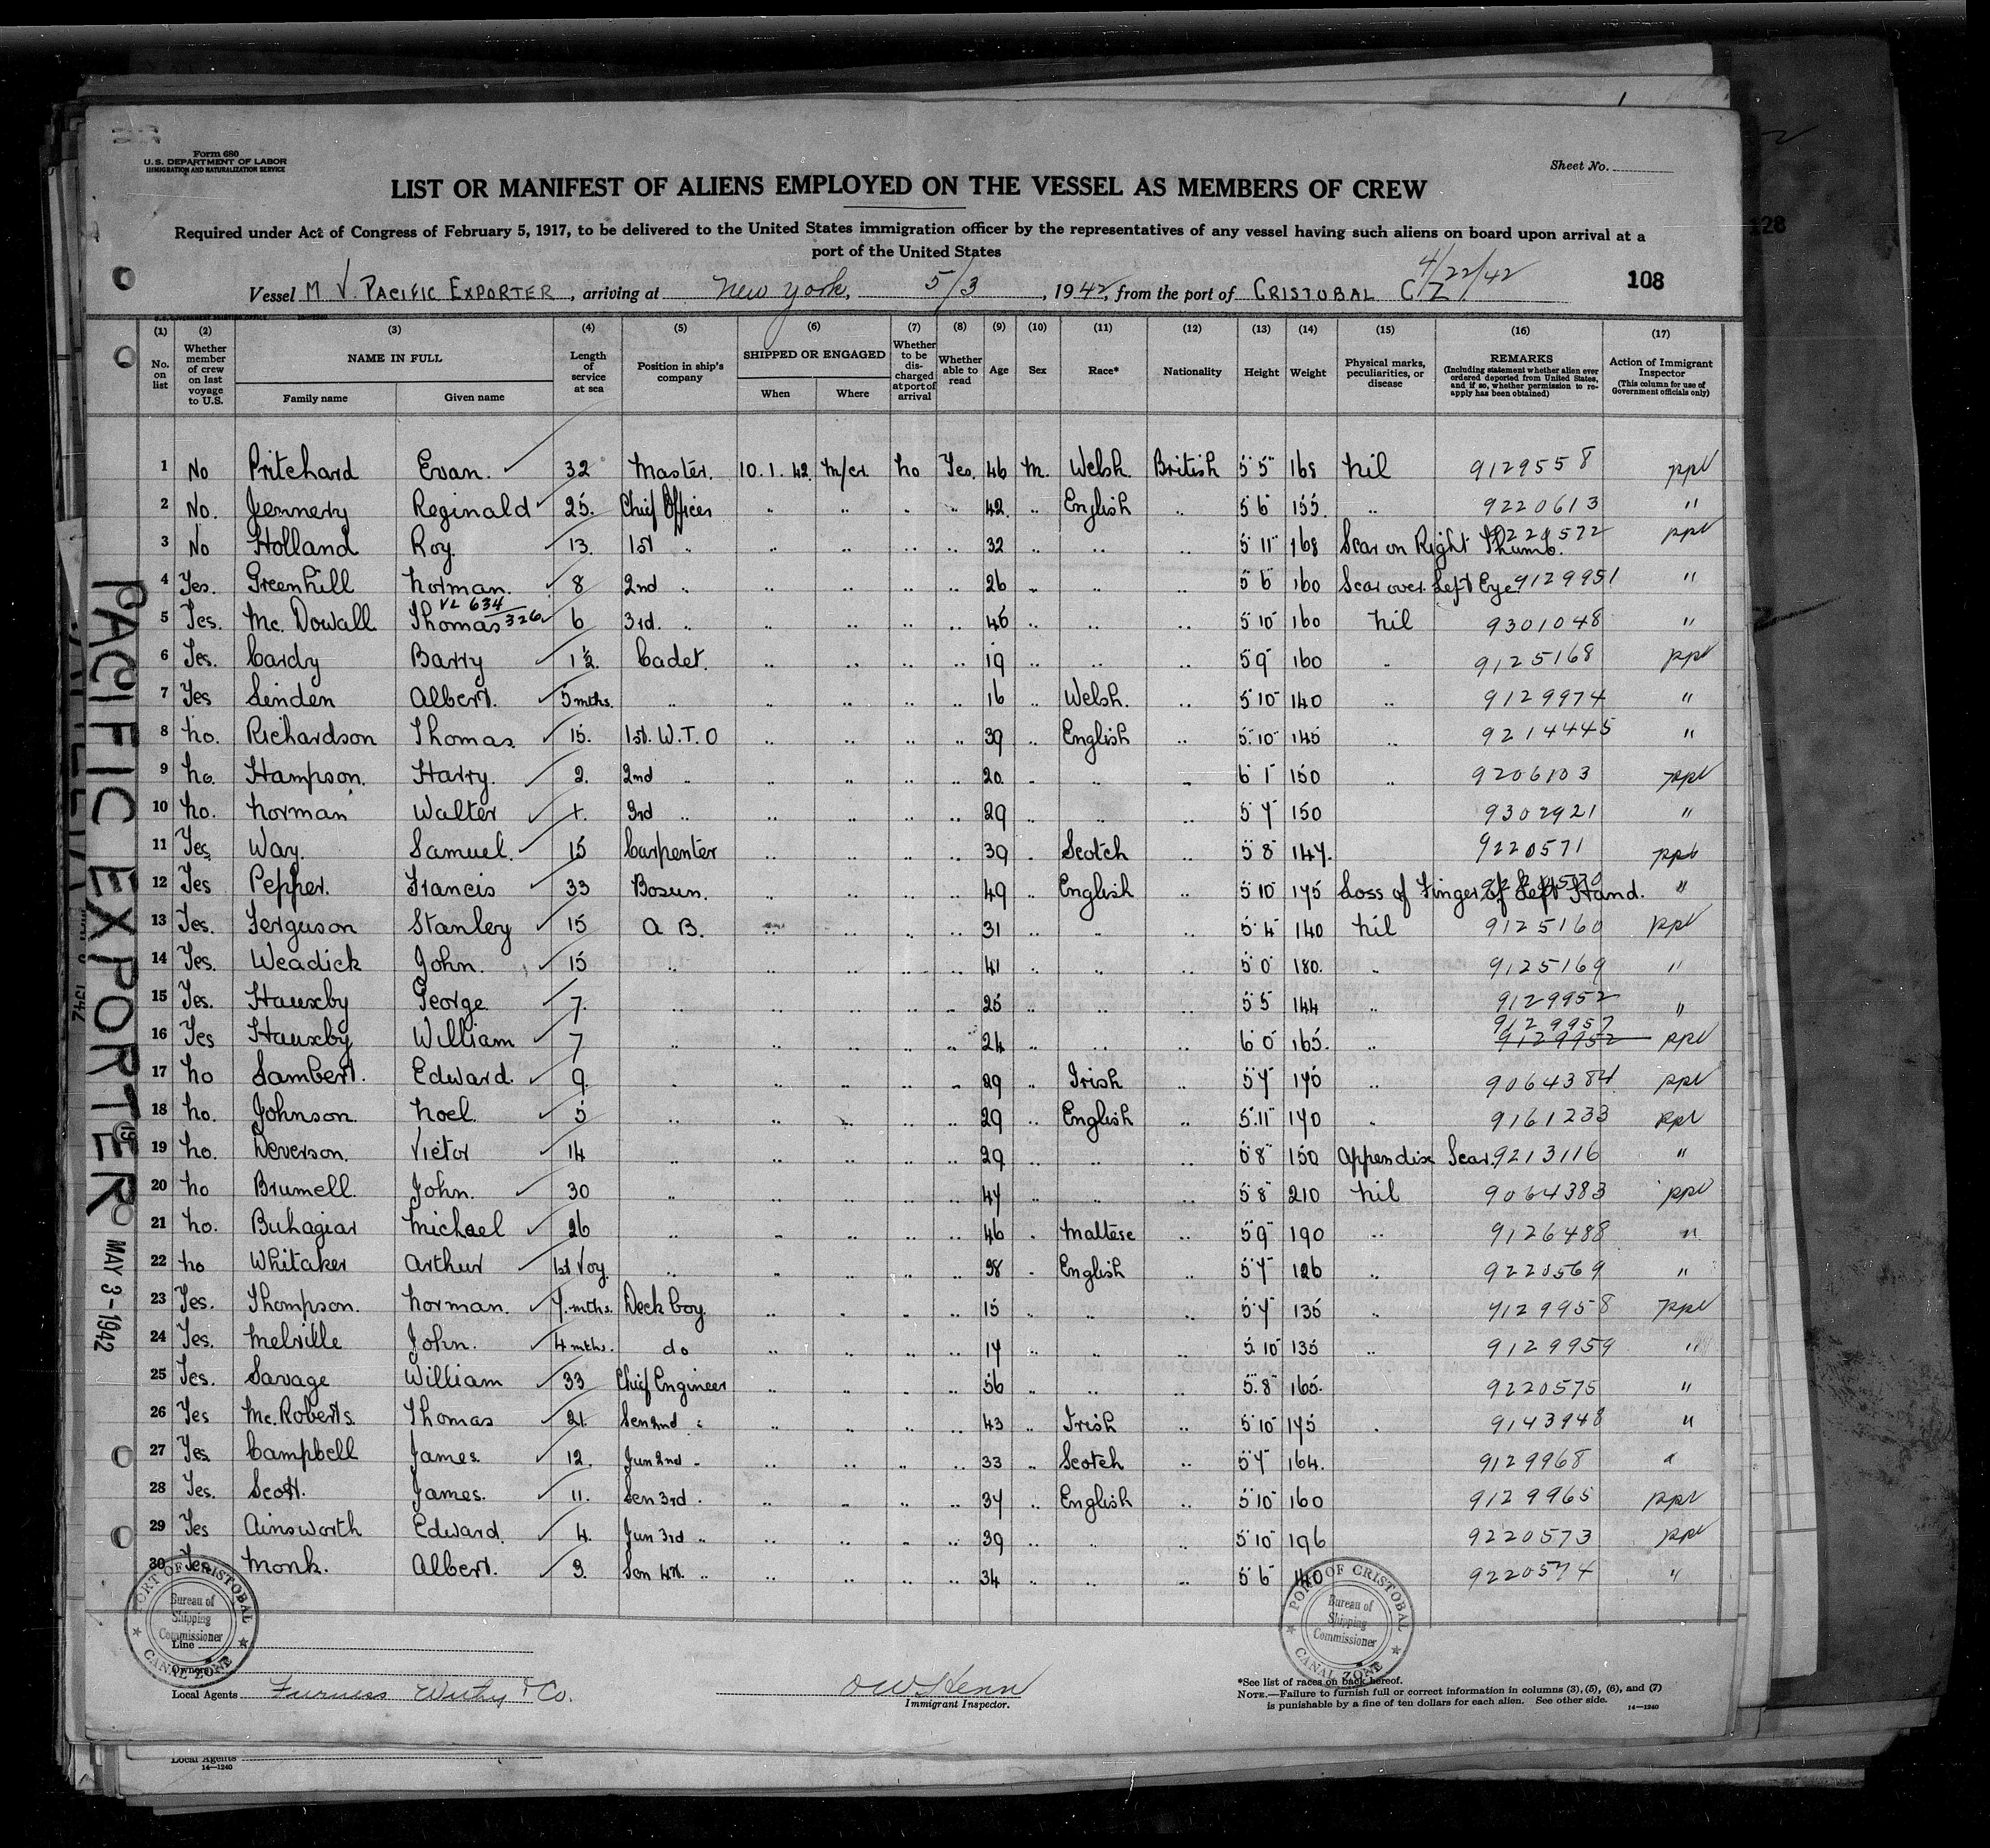 Form 680
U. S. DEPARTMENT OF LABOR
IMMIGRATION AND NATURALIZATION SERVICE
Sheet No.
LIST OR MANIFEST OF ALIENS EMPLOYED ON THE VESSEL AS MEMBERS OF CREW
Required under Act of Congress of February 5, 1917, to be delivered to the United States immigration officer by the representatives of any vessel having such aliens on board upon arrival at a
port of the United States
128
4/22/42
Vessel M V. PACIFIC EXPORTER, arriving at New York, 5/3, 1942, from the port of CRISTOBAL C Z 108
(1) (2) (3) (4) (5) (6) (7) (8) (9) (10) (11) (12) (13) (14) (15) (16) (17)
No. on list Whether member of crew on last voyage to U.S. NAME IN FULL Family name Given name Length of service at sea Position in ship's company SHIPPED OR ENGAGED When Where Whether to be discharged at port of arrival Whether able to read Age Sex Race* Nationality Height Weight Physical marks, peculiarities, or disease REMARKS (Including statement whether alien ever ordered deported from United States, and if so, whether permission to reapply has been obtained) Action of Immigrant Inspector (This column for use of Government officials only)
1 No Pritchard Evan. 32 Master. 10.1.42 M/cr. No Yes. 46 M. Welsh British 5 5 168 Nil 9129558 ppl
2 No. Jennery Reginald 25. Chief Officer .. .. .. .. 42 .. English .. 5 6 155 .. 9220613 "
3 No Holland Roy. 13. 1st .. .. .. .. .. 32 .. .. .. 5 11 168 Scar on Right Thumb. 9220572 ppl
4 Yes. Greenhill Norman. 8 2nd .. .. .. .. .. 26 .. .. .. 5 6 160 Scar over Left Eye 9129951 "
VL 634
5 Yes. Mc. Dowall Thomas 326 6 3rd. .. .. .. .. .. 46 .. .. .. 5 10 160 Nil 9301048 "
6 Yes. Cardy Barry 1½. Cadet. .. .. .. .. 19 .. .. .. 5 9 160 .. 9125168 ppl
7 Yes Linden Albert. 5 mths. .. .. .. .. .. 16 .. Welsh. .. 5 10 140 .. 9129974 "
8 No. Richardson Thomas. 15. 1st. W.T.O .. .. .. .. 39 .. English .. 5.10 145 .. 9214445 "
9 No. Hampson. Harry. 2. 2nd .. .. .. .. .. 20. .. .. .. 6 1 150 .. 9206103 ppl
10 No. Norman Walter 3rd .. .. .. .. .. 29 .. .. .. 5 7 150 9302921 "
11 Yes. Way. Samuel. 15 Carpenter .. .. .. .. 39 . Scotch .. 5 8 147. 9220571 ppl
12 Yes Pepper. Francis 33 Bosun. .. .. .. .. 49 .. English .. 5 10 175 Loss of Finger of Left Hand. "
13 Yes. Ferguson Stanley 15 A B. .. .. .. .. 31 .. .. .. 5 4 140 Nil 9125160 ppl
14 Yes. Weadick John. 15 .. .. .. .. .. 41 .. .. .. 5 0 180. .. 9125169 "
15 Yes. Hauxby George 7. .. .. .. .. .. 25 .. .. .. 5 5 144 .. 9129952 "
9129957
16 Yes Hauxby William 7 .. .. .. .. .. 24 .. .. .. 6 0 165. .. 9129952 ppl
17 No Lambert. Edward. 9. .. .. .. .. .. 29 .. Irish .. 5 7 170 .. 9064384 ppl
18 No. Johnson. Noel. 5 .. .. .. .. .. 29 .. English .. 5.11 170 . 9161233 ppl
19 No. Deverson. Victor 14 .. .. .. .. .. 29 .. .. .. 5 8 150 Appendix Scar. 9213116 "
20 No Brumell. John. 30 .. .. .. .. .. 47 .. .. .. 5 8 210 Nil 9064383 ppl
21 No. Buhagiar Michael 26 .. .. .. .. .. 46 . Maltese .. 5 9 190 .. 9126488 "
22 No Whitaker Arthur 1st Voy. .. .. .. .. .. 38 .. English .. 5 7 126 .. 9220569 "
23 Yes. Thompson. Norman. 7. mths. Deck boy. .. .. .. .. 15 .. .. .. 5 7 135 .. 9129958 ppl
24 Yes. Melville John. 4 mths. do .. .. .. .. 17 .. .. .. 5.10 135 .. 9129959 "
25 Yes. Savage William 33 Chief Engineer .. .. .. .. 56 .. .. .. 5.8 165. 9220575 "
26 Yes Mc. Roberts. Thomas 21. Sen 2nd .. .. .. .. .. 43 .. Irish .. 5 10 175 . 9143948 "
27 Yes Campbell James. 12. Jun 2nd .. .. .. .. .. 33 .. Scotch .. 5 7 164. 9129968 "
28 Yes. Scott. James. 11. Sen 3rd . .. .. .. .. 37 .. English .. 5 10 160 9129965 ppl
29 Yes Ainsworth Edward. 4. Jun 3rd .. .. .. .. .. 39 .. .. .. 5 10 196 9220573 ppl
30 Yes Monk. Albert. 3. Sen 4th .. .. .. .. .. 34 .. .. .. 5 6 140 9220574 "
PACIFIC EXPORTER
MAY 3-1942
PORT OF CRISTOBAL
Bureau of
Shipping
Commissioner
CANAL ZONE
PORT OF CRISTOBAL
Bureau of
Shipping
Commissioner
CANAL ZONE
Line
Owners
Local Agents Furness Withy & Co.
Immigrant Inspector.
*See list of races on back hereof.
NOTE.—Failure to furnish full or correct information in columns (3), (5), (6), and (7)
is punishable by a fine of ten dollars for each alien. See other side. 14—1240
Local Agents
14—1240